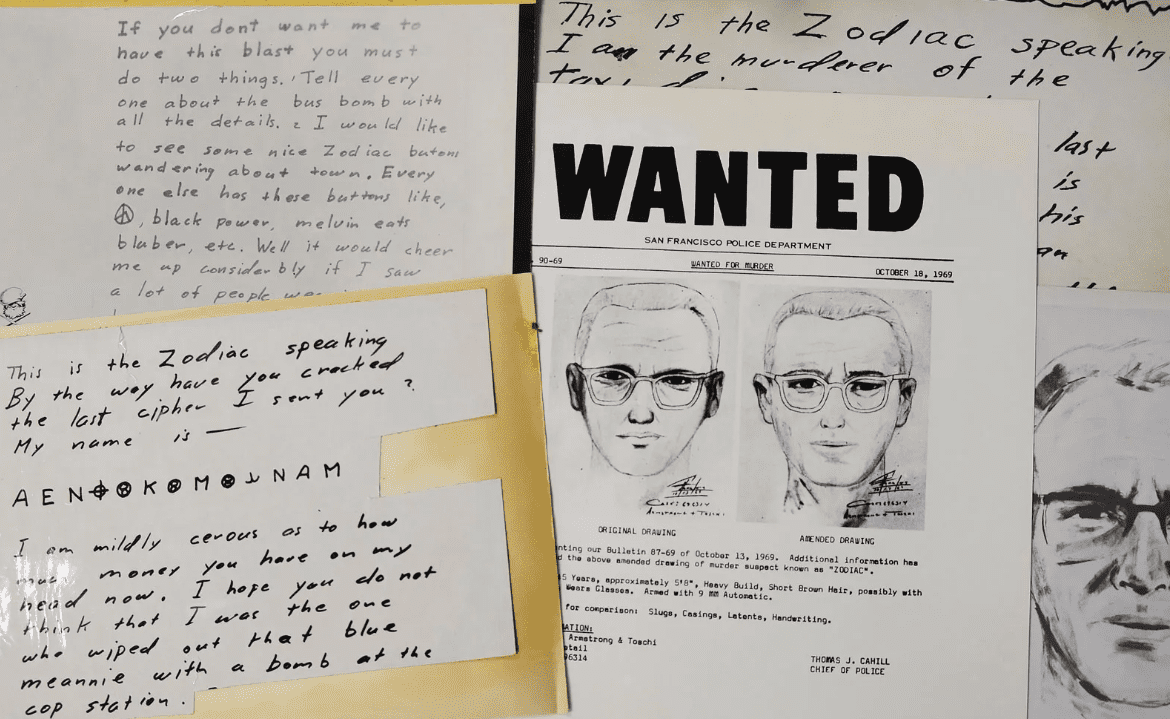 If you dont want me to
have this blast you must
do two things. Tell every
one about the bus bomb with
all the details. 2 I would like
to see some nice Zodiac butons
wandering about town. Every
one else has these buttons like,
☮, black power, melvin eats
bluber, etc. Well it would cheer
me up considerbly if I saw
a lot of people
This is the Zodiac speaking
I am the murderer of the
last
is
his
This is the Zodiac speaking
By the way have you cracked
the last cipher I sent you ?
My name is —
A E N ⌖ ⊗ K ⊗ M ⊗ ⅃ N A M
I am mildly cerous as to how
much money you have on my
head now. I hope you do not
think that I was the one
who wiped out that blue
meannie with a bomb at the
cop station.
WANTED
SAN FRANCISCO POLICE DEPARTMENT
90-69 WANTED FOR MURDER OCTOBER 18, 1969
ORIGINAL DRAWING AMENDED DRAWING
our Bulletin 87-69 of October 13, 1969. Additional information has
the above amended drawing of murder suspect known as "ZODIAC".
5 Years, approximately 5'8", Heavy Build, Short Brown Hair, possibly with
Wears Glasses. Armed with 9 MM Automatic.
for comparison: Slugs, Casings, Latents, Handwriting.
Armstrong & Toschi
96314
THOMAS J. CAHILL
CHIEF OF POLICE